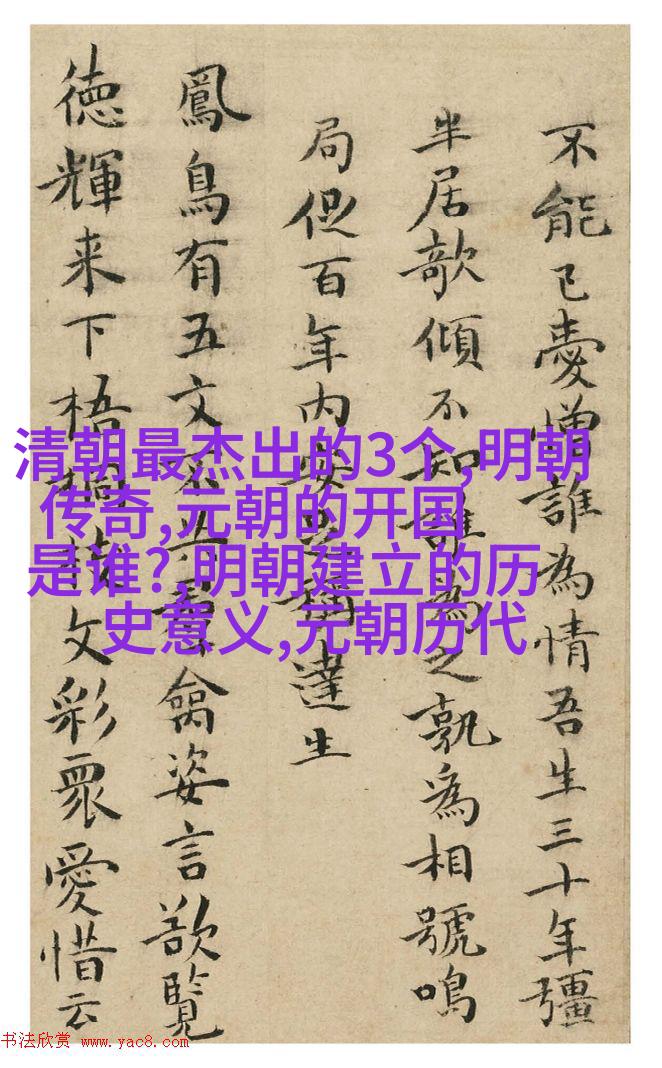 不能已憎誰為情吾生三十年彊
半居欹傾不知誰為之孰為相號鳴
局促百年内達生
鳳鳥有五文不禽姿言欲覧
徳輝来下梧桐文彩眾愛惜云
清朝最杰出的3个,明朝
传奇,元朝的开国
是谁? 明朝建立的历
史意义,元朝历代
书法欣赏 www.yac8.com